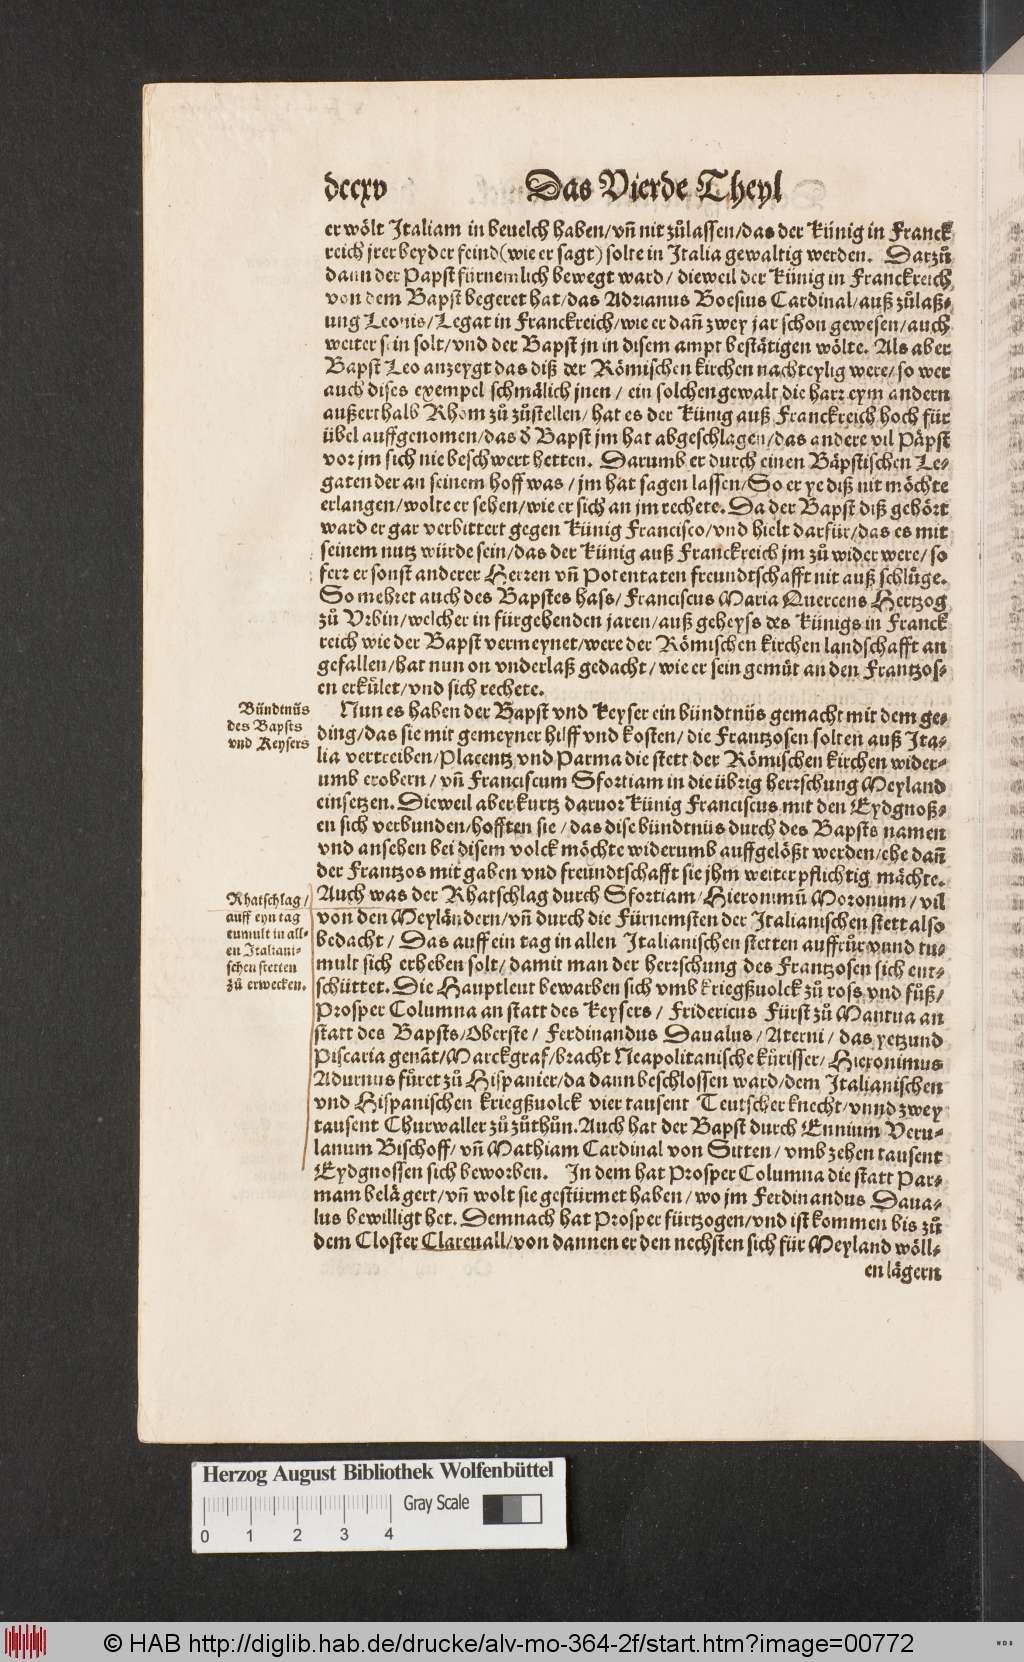 dccxv Das Vierde Theyl
er wölt Italiam in beuelch haben/vñ nit zůlassen/das der Künig in Franck
reich jrer beyder feind (wie er sagt) solte in Italia gewaltig werden. Darzů
dann der Papst fürnemlich bewegt ward/ dieweil der Künig in Franckreich
von dem Bapst begeret hat/das Adrianus Boesius Cardinal/auß zůlaß-
ung Leonis/Legat in Franckreich/wie er dañ zwey jar schon gewesen/auch
weiter sein solt/vnd der Bapst jn in disem ampt bestätigen wölte. Als aber
Bapst Leo anzeygt das diß der Römischen kirchen nachteylig were/ so wer
auch dises exempel schmälich jnen/ ein solchen gewalt die harr eym andern
außerthalb Rhom zů zůstellen/ hat es der Künig auß Franckreich hoch für
übel auffgenomen/das d̕ Bapst jm hat abgeschlagen/das andere vil Päpst
vor jm sich nie beschwert hetten. Darumb er durch einen Bäpstischen Le-
gaten der an seinem hoff was/ jm hat sagen lassen/So er ye diß nit möchte
erlangen/wolte er sehen/wie er sich an jm rechete. Da der Bapst diß gehört
ward er gar verbittert gegen Künig Francisco/vnd hielt darfür/das es mit
seinem nutz würde sein/das der Künig auß Franckreich jm zů wider were/ so
ferr er sonst anderer Herren vñ Potentaten freundtschafft nit auß schlüge.
So mehret auch des Bapstes hass/ Franciscus Maria Quercens Hertzog
zů Vrbin/welcher in fürgehenden jaren/auß geheyss des Künigs in Franck
reich wie der Bapst vermeynet/were der Römischen kirchen landschafft an
gefallen/hat nun on vnderlaß gedacht/ wie er sein gemüt an den Frantzos-
en erkület/vnd sich rechete.
Bündtnüs
des Bapsts
vnd Keysers
Nun es haben der Bapst vnd Keyser ein bündtnüs gemacht mit dem ge-
ding/das sie mit gemeyner hilff vnd kosten/ die Frantzosen solten auß Ita-
lia vertreiben/Placentz vnd Parma die stett der Römischen kirchen wider-
umb erobern/ vñ Franciscum Sfortiam in die übrig herrschung Meyland
einsetzen. Dieweil aber kurtz daruor Künig Franciscus mit den Eydgnoß-
en sich verbunden/hofften sie/das dise bündtnüs durch des Bapsts namen
vnd ansehen bei disem volck möchte widerumb auffgelößt werden/ehe dañ
der Frantzos mit gaben vnd freundtschafft sie jhm weiter pflichtig mächte.
Rhatschlag/
auff eyn tag
tumult in all-
en Italiani-
schen stetten
zů erwecken.
Auch was der Rhatschlag durch Sfortiam/ Hieronimū Moronum/ vil
von den Meyländern/vñ durch die Fürnemsten der Italianischen stett also
bedacht/ Das auff ein tag in allen Italianischen stetten auffrůr vnnd tu-
mult sich erheben solt/ damit man der herrschung des Frantzosen sich ent-
schüttet. Die Hauptleut bewarben sich vmb kriegßuolck zů ross vnd fůß/
Prosper Columna an statt des Keysers/ Fridericus Fürst zů Mantua an
statt des Bapsts/Oberste/ Ferdinandus Daualus/Aterni/ das yetzund
Piscaria genāt/Marckgraf/bracht Neapolitanische kürisser/ Hieronimus
Adurnus füret zů Hispanier/da dann beschlossen ward/dem Italianischen
vnd Hispanischen kriegßuolck vier tausent Teutscher knecht/vnnd zwey
tausent Churwaller zů zůthůn. Auch hat der Bapst durch Ennium Veru-
lanum Bischoff/ vñ Mathiam Cardinal von Sitten/ vmb zehen tausent
Eydgnossen sich beworben. In dem hat Prosper Columna die statt Par-
mam belägert/vñ wolt sie gestürmet haben/ wo jm Ferdinandus Daua-
lus bewilligt het. Demnach hat Prosper fürtzogen/vnd ist kommen bis zů
dem Closter Clareuall/von dannen er den nechsten sich für Meyland wöll-
en lägern
Herzog August Bibliothek Wolfenbüttel
Gray Scale
0 1 2 3 4
© HAB http://diglib.hab.de/drucke/alv-mo-364-2f/start.htm?image=00772